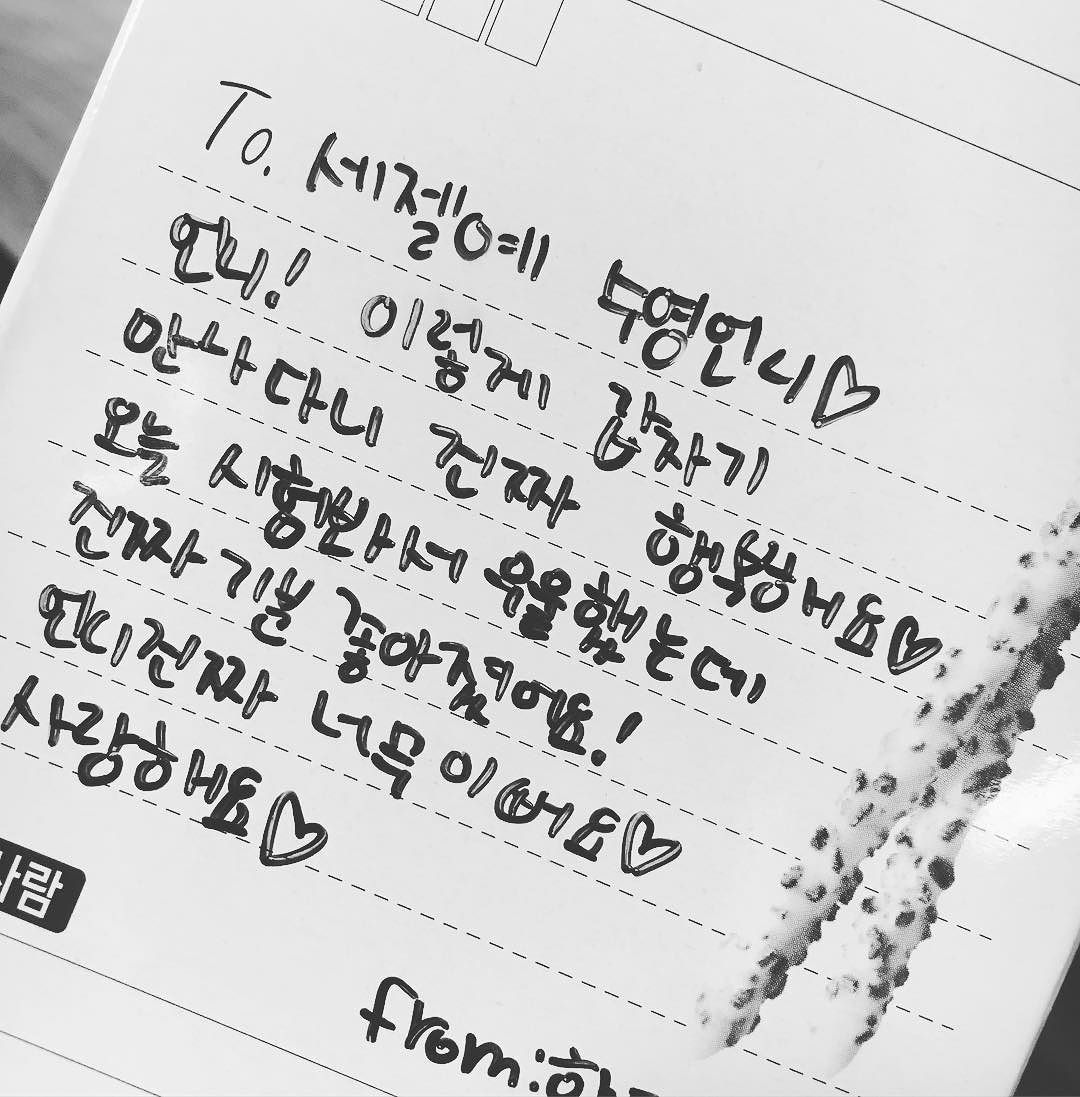 To. 세젤예 수영언니♡
언니! 이렇게 갑자기
만나다니 진짜 행복해요♡
오늘 시험봐서 우울했는데
진짜 기분 좋아졌어요!
언니 진짜 너무 이뻐요♡
사랑해요♡
사람
from: